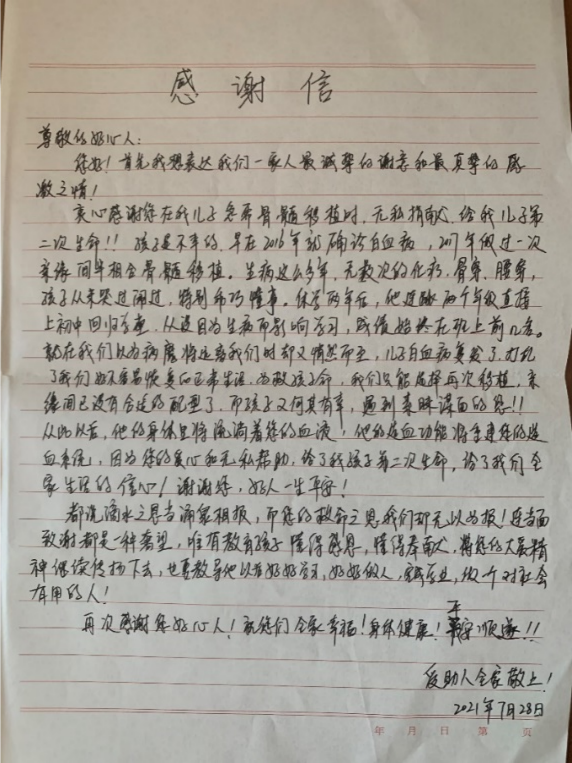 感谢信
尊敬的好心人：
您好！首先我想表达我们一家人最诚挚的谢意和最真挚的感
激之情！
衷心感谢您在我儿子急需骨髓移植时，无私捐献，给我儿子第
二次生命！！孩子是不幸的，早在2016年就确诊白血病，2017年做过一次
亲缘间半相合骨髓移植。生病这么多年，无数次的化疗、骨穿、腰穿，
孩子从未哭过闹过，特别乖巧懂事。休学两年后，他连跳两个年级直接
上初中回归学校，从没因为生病而影响学习，成绩始终在班上前几名。
就在我们以为病魔将远离我们时却又悄然而至，儿子白血病复发了，打乱
了我们好不容易恢复的正常生活，为救孩子命，我们只能选择再次移植，亲
缘间已没有合适的配型了，而孩子又何其有幸，遇到素昧谋面的您！！
从此以后，他的身体里将流淌着您的血液，他的造血功能将重建您的造
血系统，因为您的爱心和无私帮助，给了我孩子第二次生命，给了我们全
家生活的信心！谢谢您，好人一生平安！
都说滴水之恩当涌泉相报，而您的救命之恩我们却无以为报！连当面
致谢都是一种奢望，唯有教育孩子懂得感恩，懂得奉献，将您的大爱精
神继续传扬下去，也要教导他以后好好学习，好好做人，诚业，做个对社会
有用的人！
再次感谢您好心人！祝您们全家幸福！身体健康！平安顺遂！！
受助人全家敬上！
2021年7月28日
年 月 日 第 页